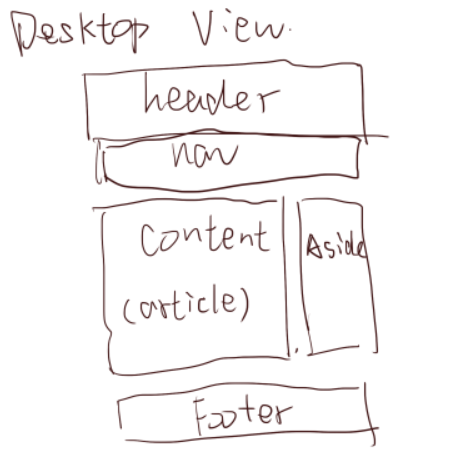 Desktop View.
header
nav
Content
(article)
Aside
Footer